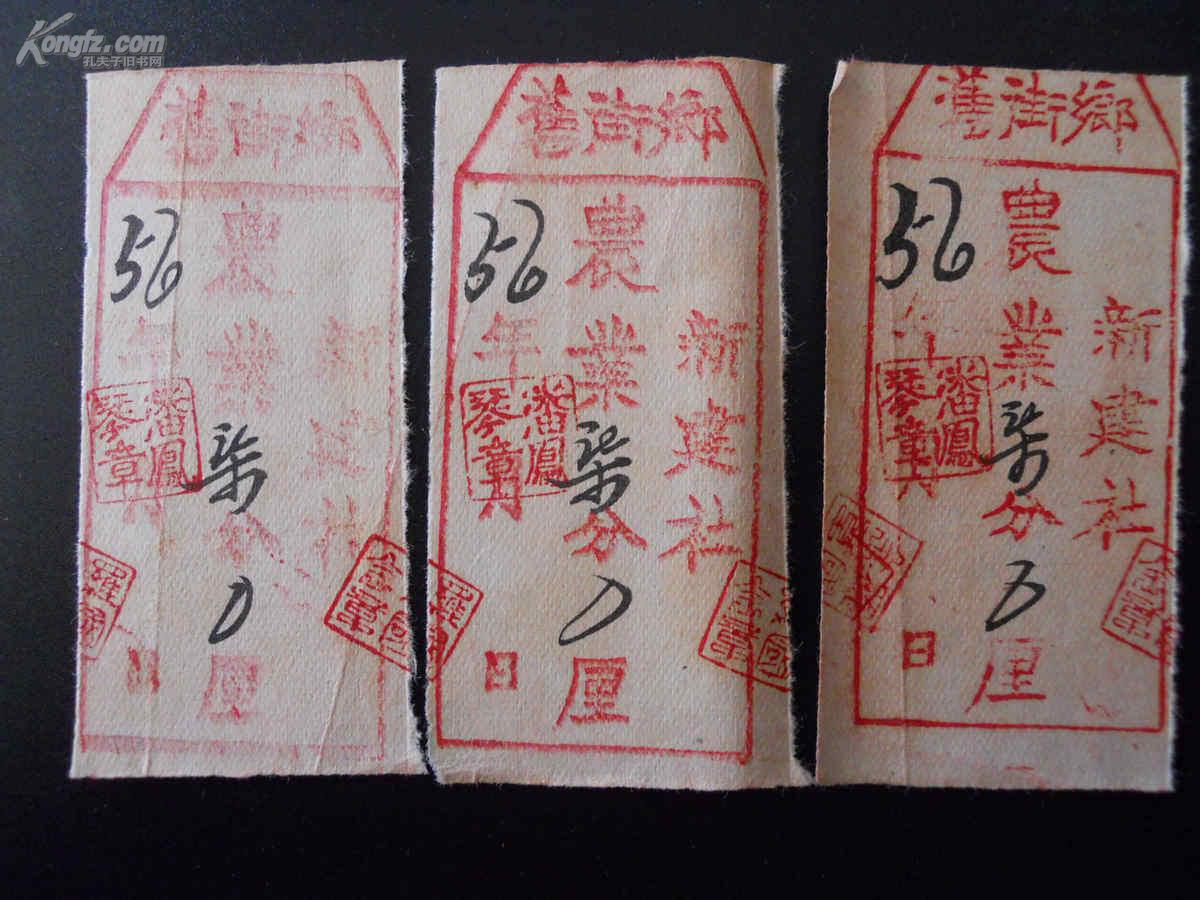 Kongfz.com
孔夫子旧书网
舊街鄉
新建社
農業柒分0厘
56年月日
潘鳳琴章
舊街鄉
新建社
農業柒分0厘
56年月日
潘鳳琴章
舊街鄉
新建社
農業柒分5厘
56年月日
潘鳳琴章